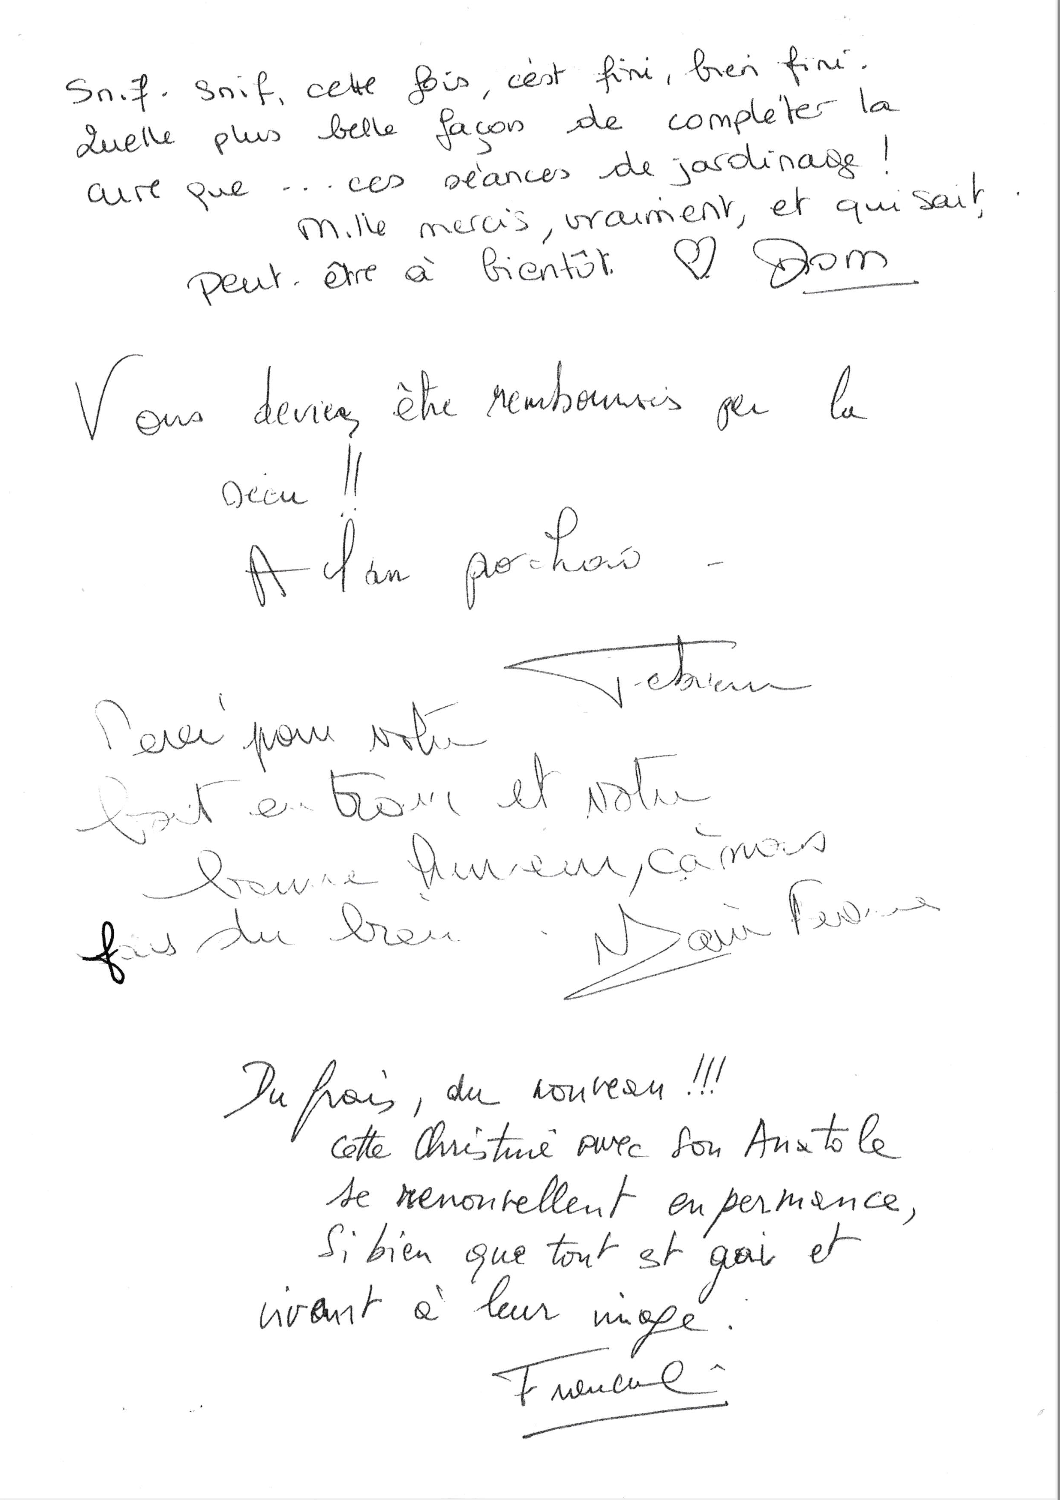 Snif. Snif, cette fois, c'est fini, bien fini.
Quelle plus belle façon de compléter la
cure que ... ces séances de jardinage !
Mille mercis, vraiment, et qui sait,
peut-être à bientôt. ♡ Dom
Vous devriez être remboursés par la
sécu !!
A l'an prochain -
Merci pour votre
fait entrain et votre
bonne humeur, çà nous
fais du bien.
Marie
Du frais, du nouveau !!!
cette Christine avec son Anatole
se renouvellent en permance,
Si bien que tout est gai et
vivant à leur image.